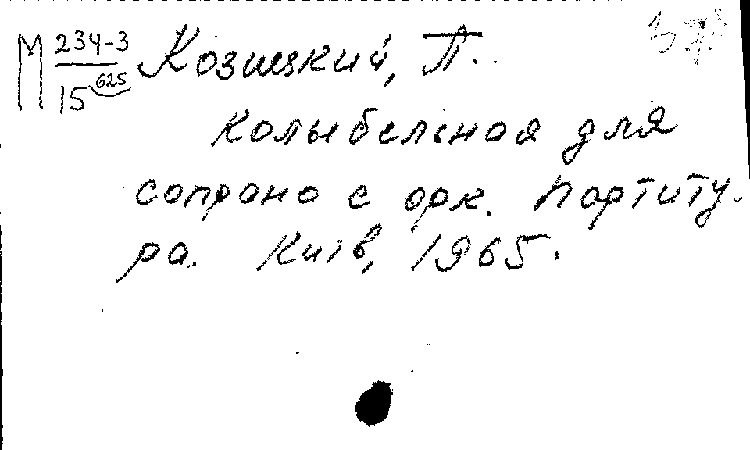 М 234-3 Козицкий, П.
15 625
Колыбельная для
сопрано с орк. Партиту-
ра. Київ, 1965.